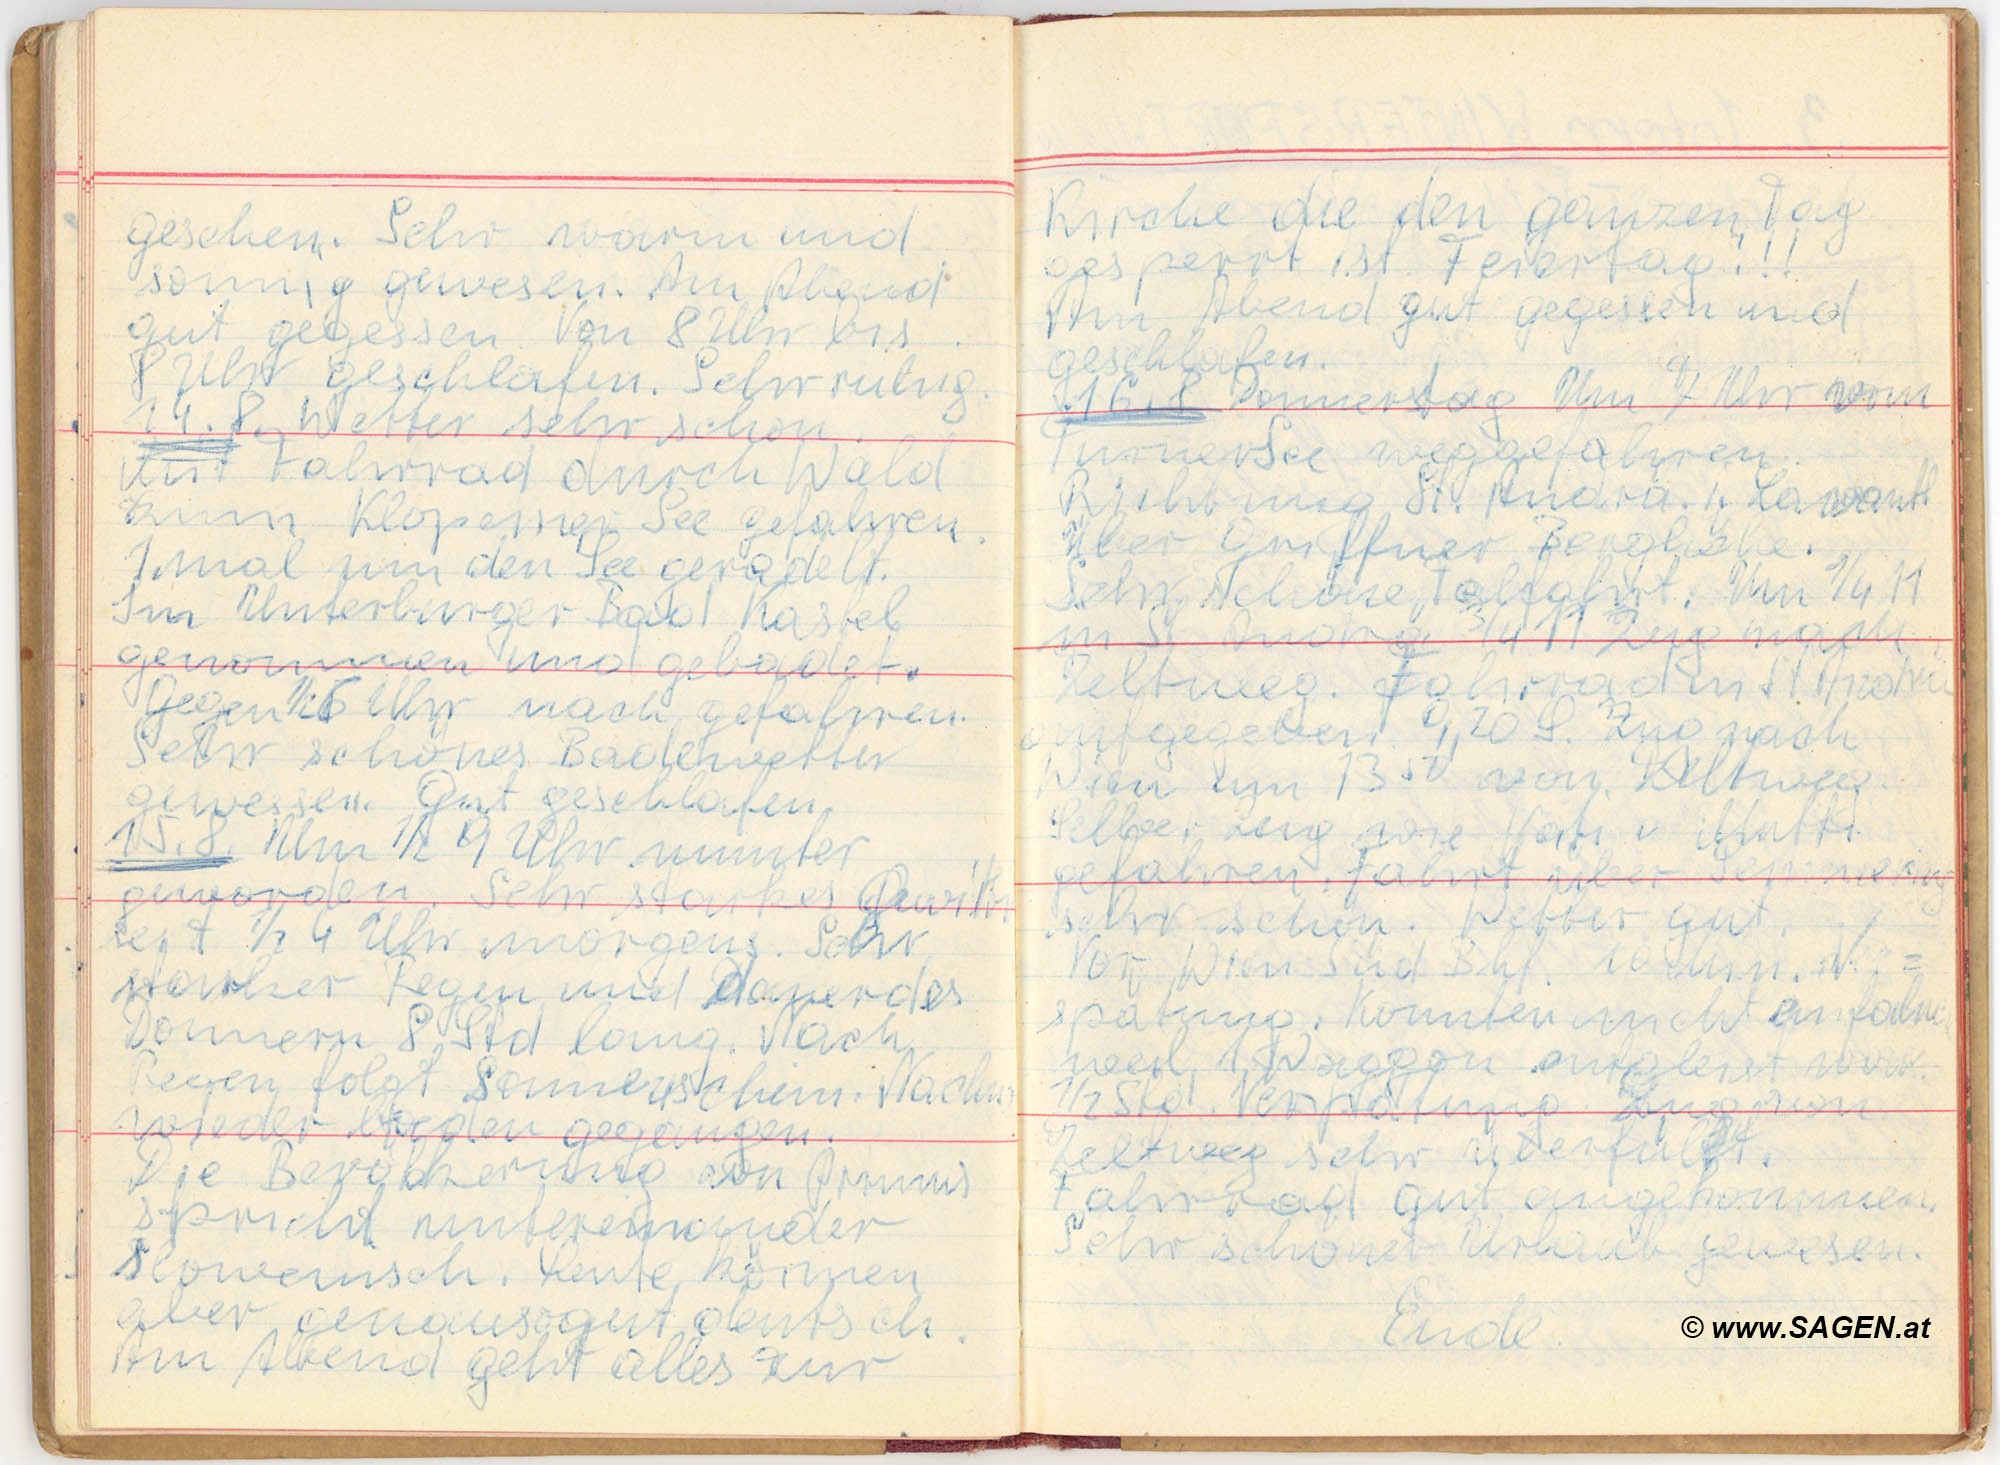 gesehen. Sehr warm und
sonnig gewesen. Am Abend
gut gegessen. Von 8 Uhr bis
8 Uhr geschlafen. Sehr ruhig.
14.8. Wetter sehr schön.
Mit Fahrrad durch Wald
zum Klopeiner See gefahren.
1mal um den See geradelt.
Im Unterburger Bad Kastel
genommen und gebadet.
Gegen 1/2 6 Uhr nach gefahren.
Sehr schönes Badewetter
gewesen. Gut geschlafen.
15.8. Um 1/2 9 Uhr munter
geworden. Sehr starkes Gewitter
seit 1/2 4 Uhr morgens. Sehr
starker Regen und Dauerdes
Donnern 8 Std lang. Nach
Regen folgt Sonnenschein. Nachm
wieder baden gegangen.
Die Bevölkerung von Primus
spricht untereinander
Slowenisch. Leute können
aber genausogut deutsch.
Am Abend geht alles zur
Kirche die den ganzen Tag
gesperrt ist. Feiertag!!!
Am Abend gut gegessen und
geschlafen.
16.8 Donnerstag Um 7 Uhr vom
Turnersee weggefahren.
Richtung St. Andrä. i. Lavantt
Über Griffner Berghöhe.
Sehr schöne Talfahrt. Um 1/4 11
in St Andrä 3/4 11 Zug nach
Zeltweg. Fahrrad in St Andrä
aufgegeben. 9,20 S. Zug nach
Wien um 13 50 von Zeltweg.
Selber Zug wie Vati u Mutti
gefahren. Fahrt über Semmering
sehr schön. Wetter gut.
Vor Wien Süd Bhf. 10 Min. Ver=
spätung. Konnten nicht einfahren
weil 1 Waggon entgleist war.
1/2 Std. Verspätung. Zug von
Zeltweg sehr überfüllt.
Fahrrad gut angekommen.
Sehr schöner Urlaub gewesen.
Ende
© www.SAGEN.at